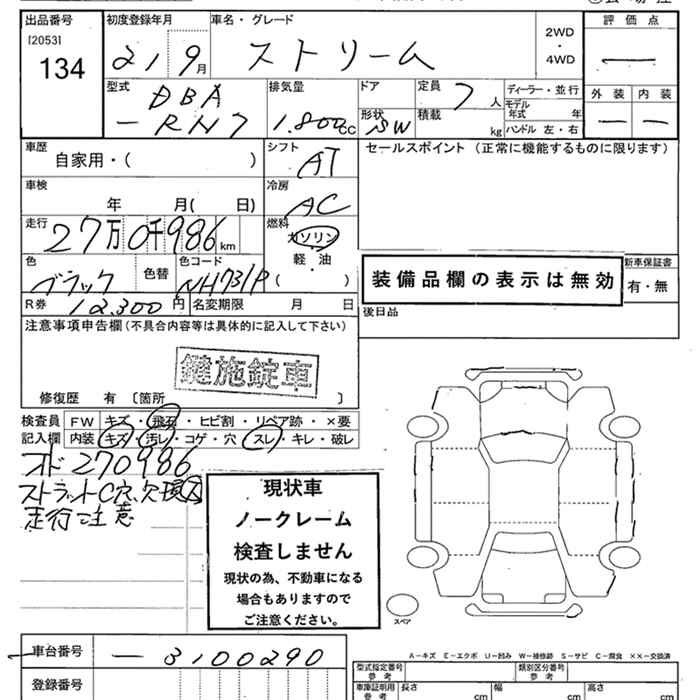 出品番号
[2053]
134
初度登録年月
21 9月
車名・グレード
ストリーム
2WD
・
4WD
評価点
—
外装 内装
— —
型式
DBA
－RN7
排気量
1.800cc
ドア
形状
SW
定員
7人
積載
kg
ディーラー・並行
モデル
年式 年
ハンドル 左・右
車歴
自家用・( )
シフト
AT
セールスポイント (正常に機能するものに限ります)
車検
年 月( 日)
冷房
AC
走行
27万0千986km
燃料
ガソリン
軽・油
( )
色
ブラック
色替
色コード
NH731P
R券 12.300円
名変期限 月 日
装備品欄の表示は無効
新車保証書
有・無
後日品
注意事項申告欄(不具合内容等は具体的に記入して下さい)
鍵施錠車
修復歴 有〔箇所 〕
検査員
記入欄
FW キズ・飛石・ヒビ割・リペア跡・×要
内装 キズ・汚レ・コゲ・穴・スレ・キレ・破レ
オド270986
ストラットC穴、欠
走行注意
現状車
ノークレーム
検査しません
現状の為、不動車になる
場合もありますので
ご注意ください。
スペア
A－キズ E－エクボ U－凹み W－補修跡 S－サビ C－腐食 ××－交換済
車台番号 － 3100290
登録番号
型式指定番号
参考
類別区分番号
参考
車庫証明用
参考
長さ cm
幅 cm
高さ cm